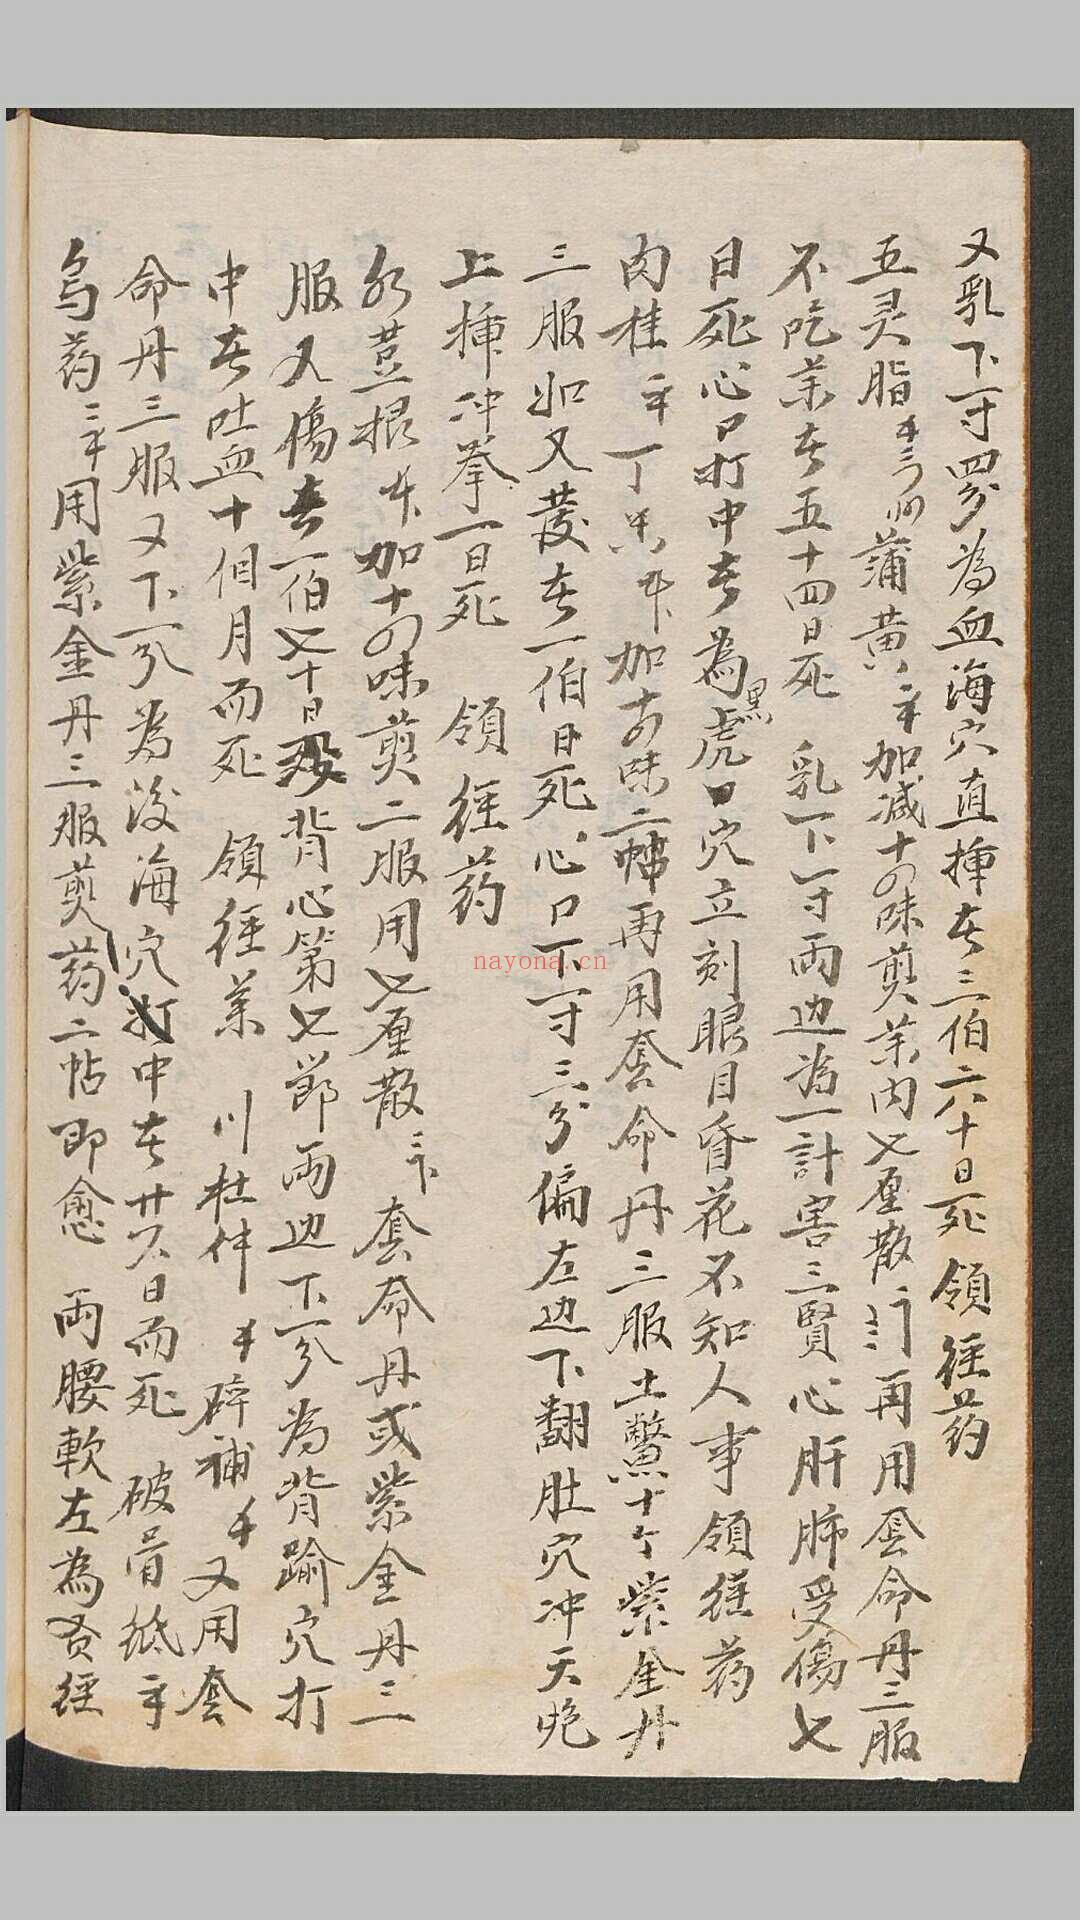 又乳下一寸四分為血海穴直揷去三伯六十日死領徑药
五灵脂 蒲黄 加减十四味煎茶内七厘散 再用套命丹三服
不吃茶去五十四日死 乳下一寸兩边為一計害三賢心肝肺受傷七
日死心口打中去為黑虎口穴立刻眼目昏花不知人事領徑药
肉桂 丁 加 味二帖再用套命丹三服土鱉十个紫金丹
三服如又發去一伯日死心口下一寸三分偏左边下翻肚穴冲天炮
上揷冲拳一日死 領徑药
荳根 加十四味煎二服用七厘散 套命丹或紫金丹三
服又傷去一伯七十日 背心第七節兩边下一分為背踰穴打
中去吐血十個月而死 領徑茶 川杜仲 碎補 又用套
命丹三服又下一分為後海穴打中去 日而死 破 紙
烏药 用紫金丹三服煎药二帖即愈 両腰軟左為 徑
nayona.cn